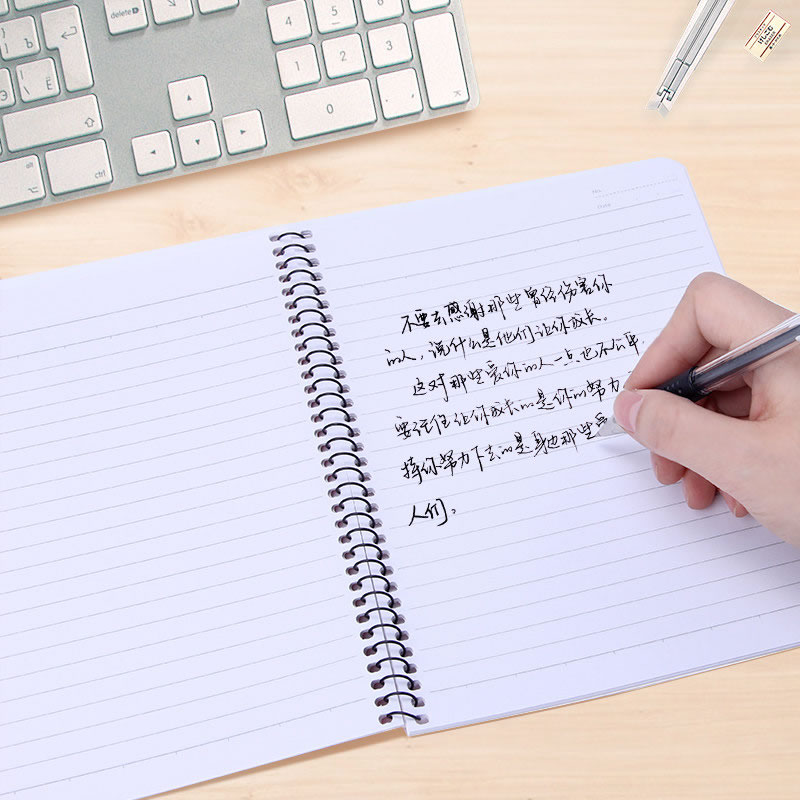 delete
4
5
6
1
2
3
0
Ъ
Э
Ё
alt
ctrl
けしごむ
No.
Date
不要去感谢那些曾经伤害你
的人，说什么是他们让你成长。
这对那些爱你的人一点也不公平.
要记住让你成长的是你的努力
持你努力下去的是身边那些爱
人们。